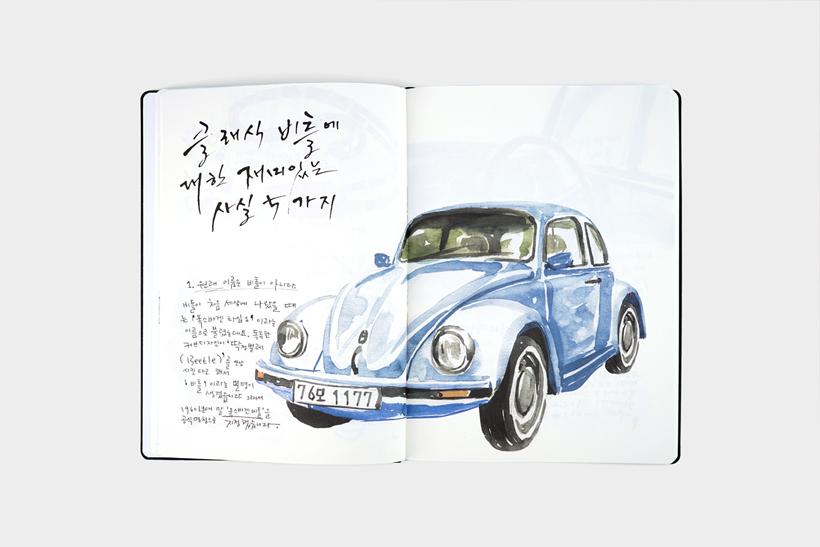 클래식 비틀에
대한 재미있는
사실 두 가지
1. 원래 이름은 비틀이 아니다.
비틀이 처음 세상에 나왔을 때
는 '폭스바겐 타입 1' 이라는
이름으로 불렸는데요. 독특한
커브 디자인이 '딱정벌레
(Beetle)'를 연상
시킨다고 해서
'비틀' 이라는 별명이
생겼습니다. 그래서
1960년대 말 '폭스바겐 비틀'을
공식명칭으로 지정했습니다.
76모 1177